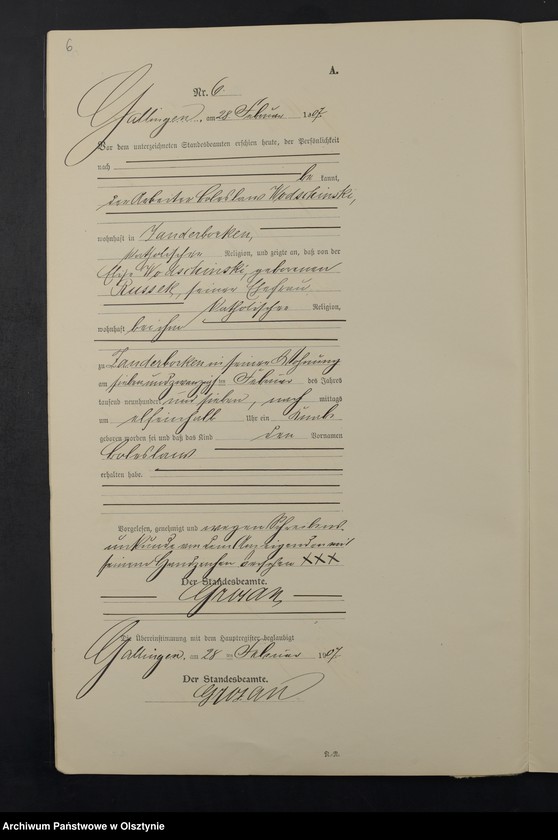 6
A.
Nr. 6.
Gallingen, am 28 Februar 1907.
Vor dem unterzeichneten Standesbeamten erschien heute, der Persönlichkeit
nach
be kannt,
der Arbeiter Boleslaw Wodschinski,
wohnhaft in Tanderborken,
katholischer Religion, und zeigte an, daß von der
Elise Wodschinski, geborenen
Russek, seiner Ehefrau
katholischer Religion,
wohnhaft bei ihm
zu Tanderborken in seiner Wohnung
am siebenundzwanzigsten Februar des Jahres
tausend neunhundert und sieben, nach mittags
um elfeinhalb Uhr ein Knabe
geboren worden sei und daß das Kind den Vornamen
Boleslaw
erhalten habe.
Vorgelesen, genehmigt und wegen Schreibens-
unkunde von dem Anzeigenden mit
seinem Handzeichen versehen XXX
Der Standesbeamte.
Grosau
Die Übereinstimmung mit dem Hauptregister beglaubigt
Gallingen, am 28 ten Februar 1907.
Der Standesbeamte.
Grosau
Archiwum Państwowe w Olsztynie